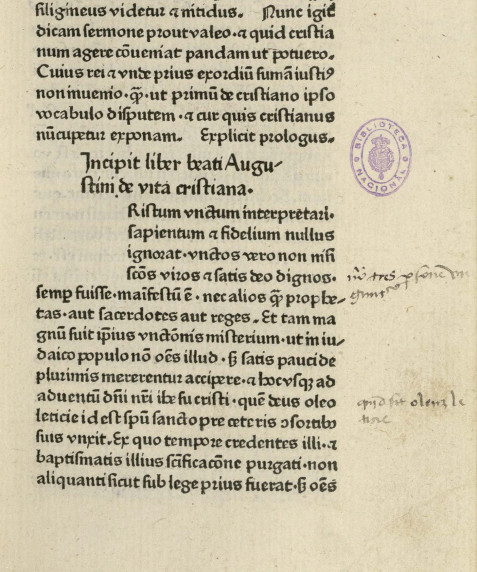 filigineus videtur ⁊ nitidus. Nunc igit̃
dicam sermone prout valeo · ⁊ quid cristia
num agere cōueniat pandam ut potuero.
Cuius rei ⁊ vnde prius exordiū sumā iustiꝰ
non inuenio · q̄ꝫ · ut primū de cristiano ipso
vocabulo disputem · ⁊ cur quis cristianus
nūcupetur exponam. Explicit prologus.
Incipit liber beati Augu-
stini de vita cristiana.
Ristum vnctum interpretari.
sapientum ⁊ fidelium nullus
ignorat · vnctos vero non nisi
scōs viros ⁊ satis deo dignos.
semꝑ fuisse · maīfestū ē · nec alios q̄ꝫ prophe-
tas · aut sacerdotes aut reges. Et tam ma
gnū fuit ip̄ius vnctōnis misterium · ut in iu-
daico populo nō oēs illud · sꝫ satis pauci de
plurimis mererentur accipere · ⁊ hocusqꝫ ad
aduentū dn̄i nr̄i ihesu cristi · quē deus oleo
leticie id est spū sancto pre ceteris ↄsortibꝰ
suis vnxit. Ex quo tempore credentes illi · ⁊
baptismatis illius scīficacōne purgati · non
aliquanti sicut sub lege prius fuerat · sꝫ oēs
BIBLIOTECA NACIONAL
tres
quid sit oleum le
ticie